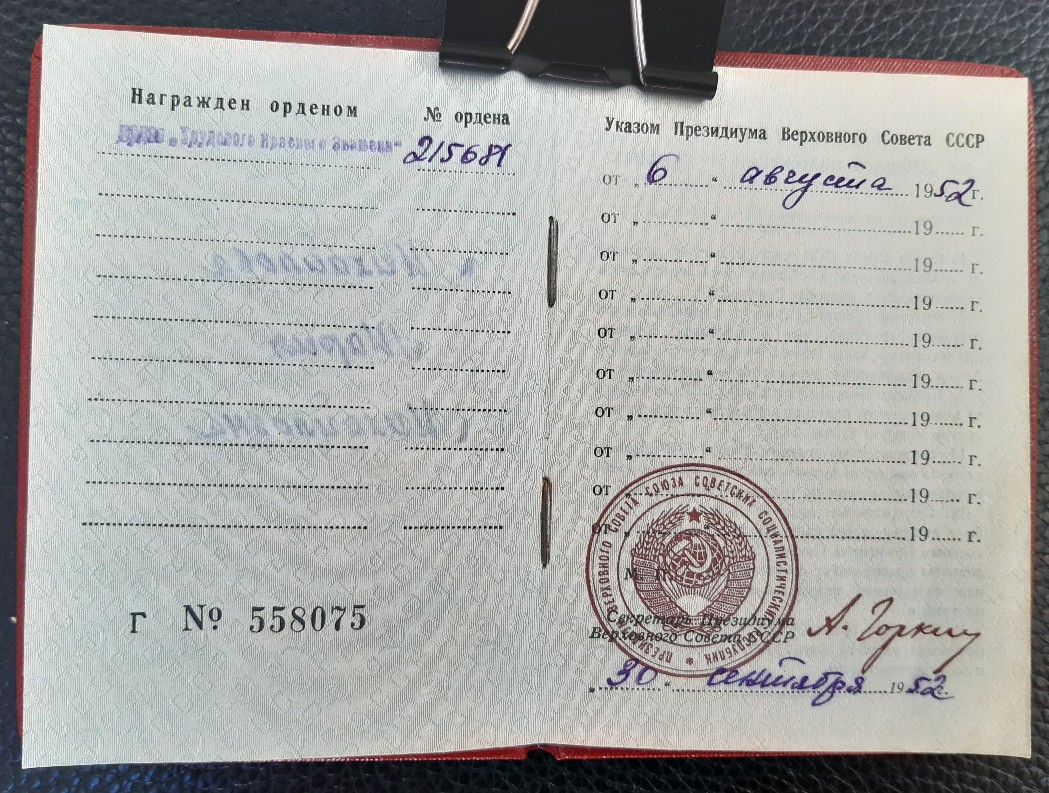 Награжден орденом
№ ордена
„Трудового Красного Знамени“
215681
Г № 558075
Указом Президиума Верховного Совета СССР
от „6“ августа 1952 г.
от „ “ 19 г.
от „ “ 19 г.
от „ “ 19 г.
от „ “ 19 г.
от „ “ 19 г.
от „ “ 19 г.
от „ “ 19 г.
от „ “ 19 г.
от „ “ 19 г.
ПРЕЗИДИУМ ВЕРХОВНОГО СОВЕТА СОЮЗА СОВЕТСКИХ СОЦИАЛИСТИЧЕСКИХ РЕСПУБЛИК
М. П.
Секретарь Президиума
Верховного Совета СССР
А. Горкин
„30“ сентября 1952 г.